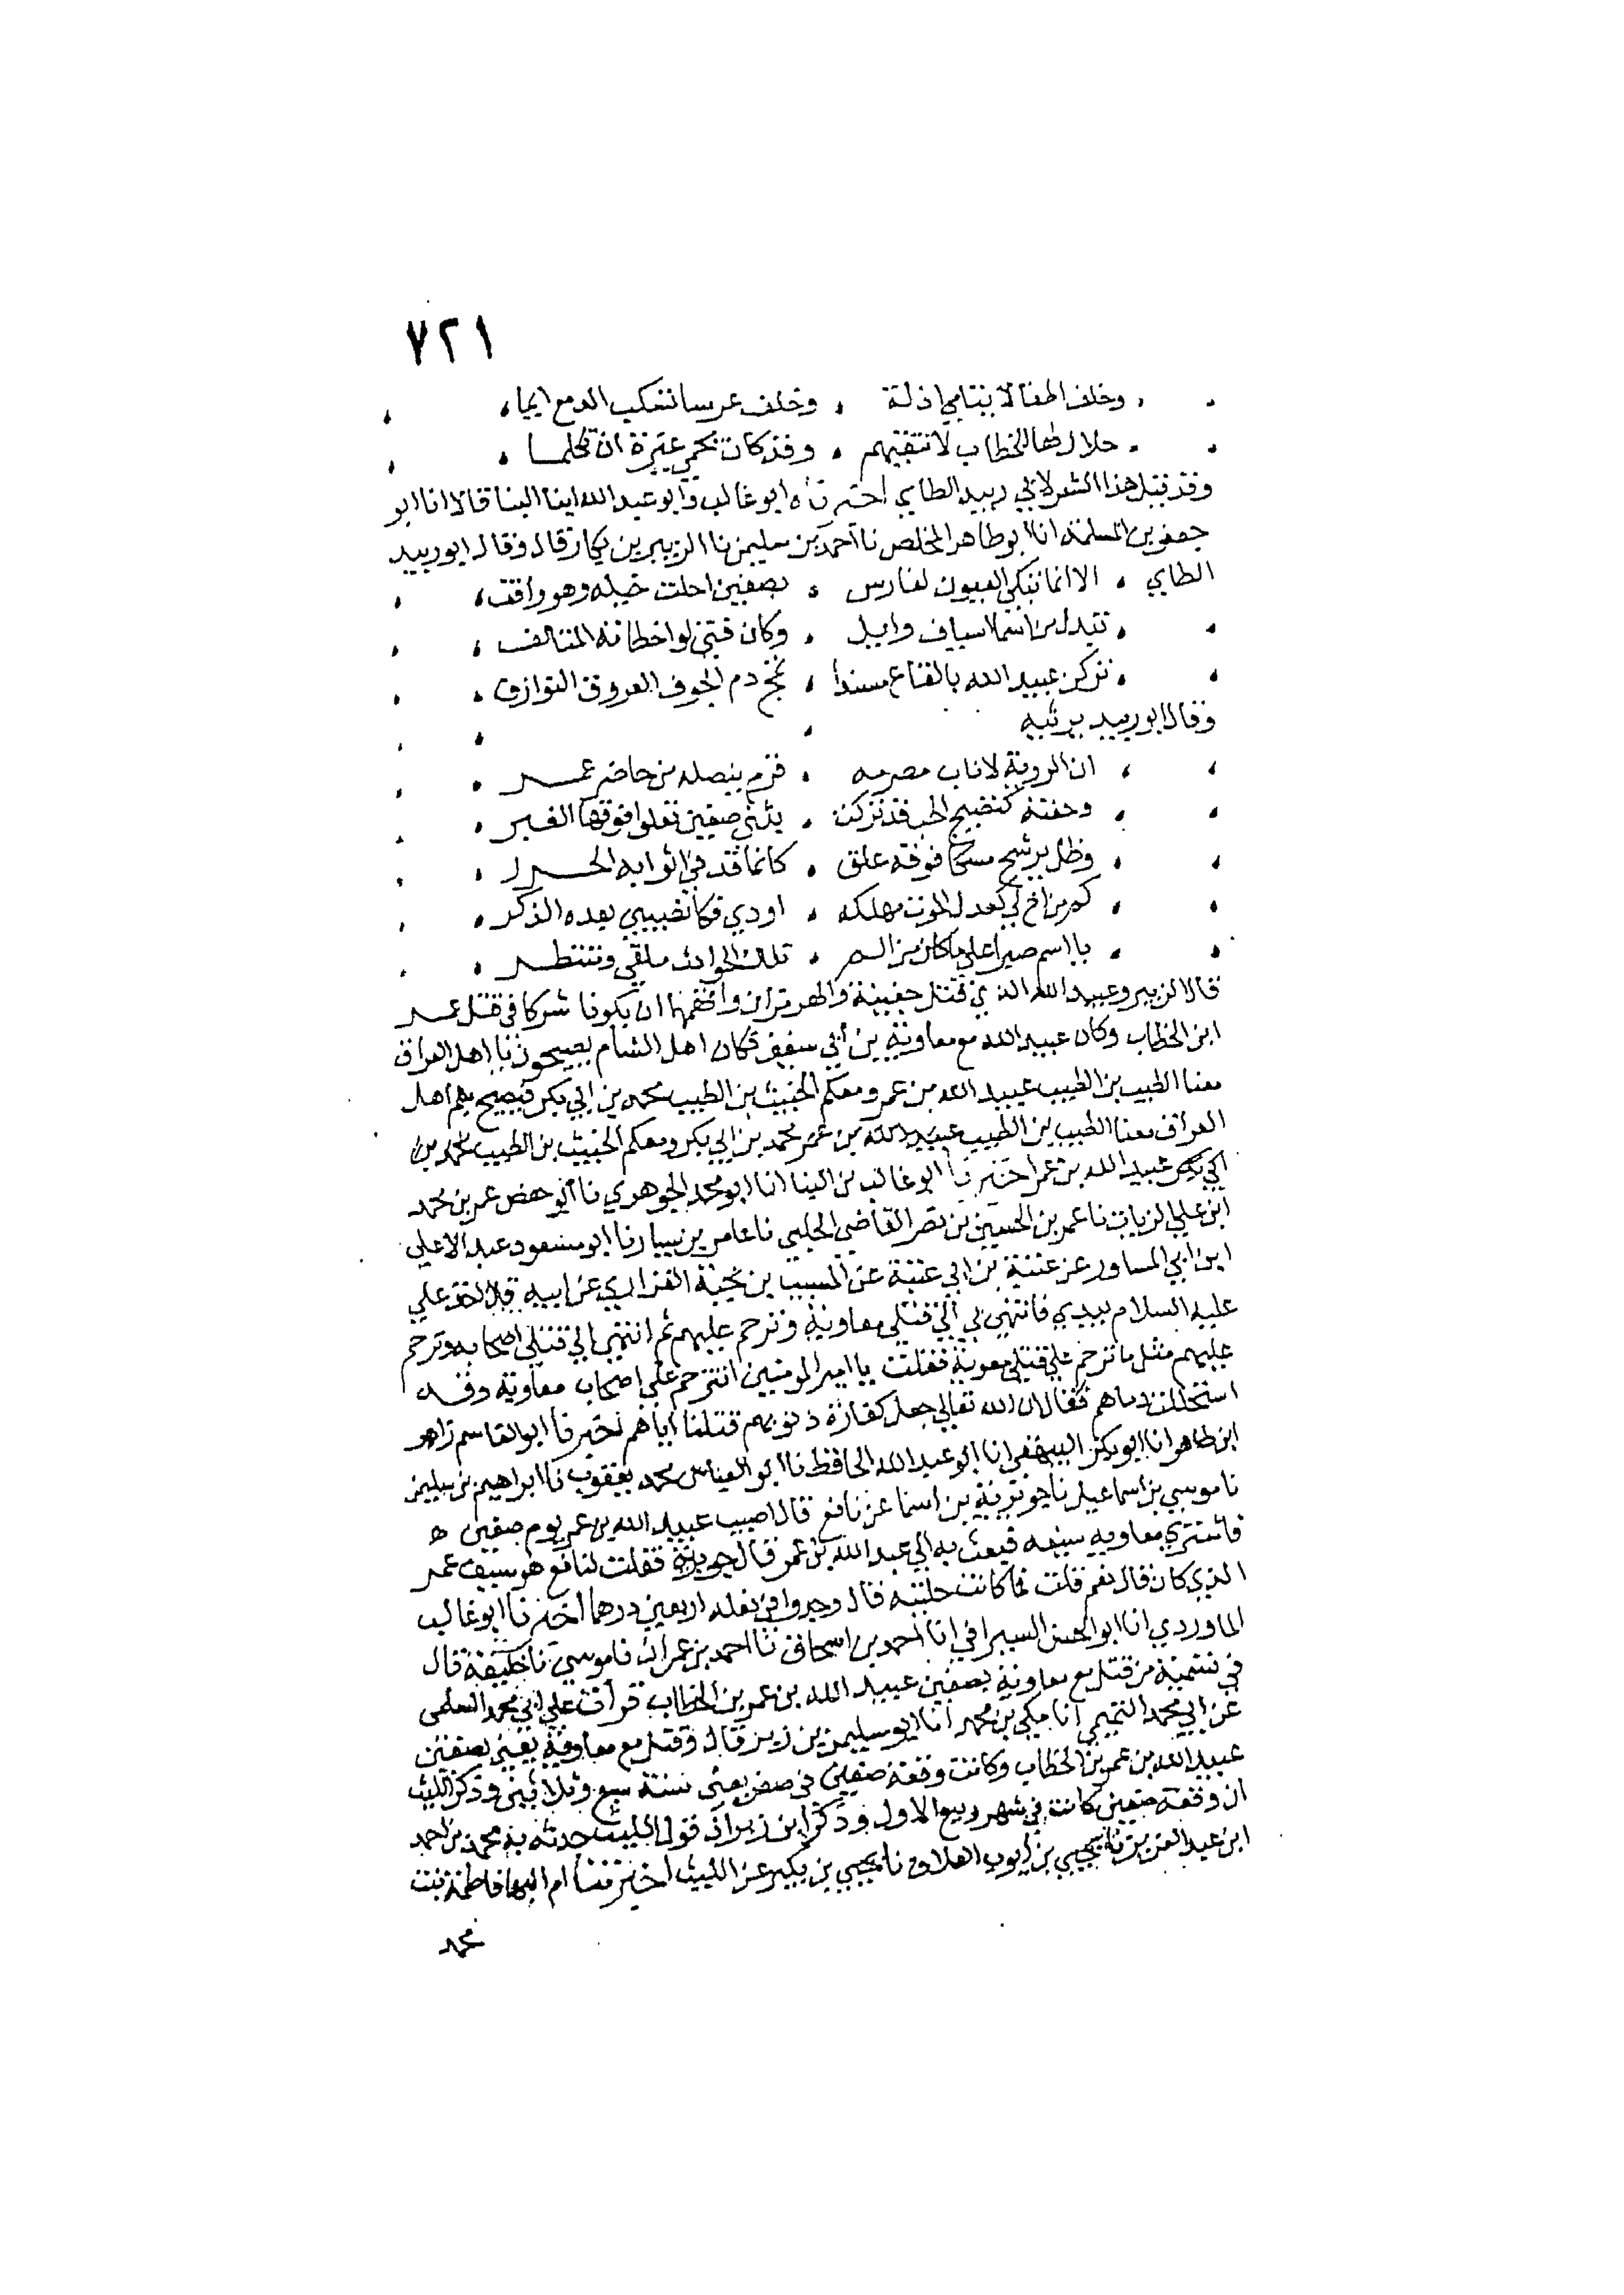 ٧٢١
وخلف اطفالا يتامي اذلة ، وخلف عرسا تسكب الدمع ايما ،
حلالا لها الخطاب لا تتقيهم ، وقد كان يحمي غيرة ان تكلما ،
وقد قيل هذا الشعر لابي زبيد الطاي اخبرناه ابو غالب وابو عبد الله ابنا البنا قالا انا ابو
جعفر بن المسلمة انا ابو طاهر المخلص نا احمد بن سليمن نا الزبير بن بكار قال وقال ابو زبيد
الطاي ، الا انما تبكي العيون لفارس ، بصفين اجلت خيله وهو واقف ،
تبدل من اسما اسياف وايل ، وكان فتي لو اخطاته المتالف ،
تركن عبيد الله بالقاع مسندا ، تمج دم الجوف العروق النوازف ،
وقال ابو زبيد يرثيه
ان الرزية لا ناب مصرمه ، قرم بنصله من حاضر عمر ،
وجفنة كنضيج الحب قد تركت ، يثني صفين تعلوا فوقها الغبر ،
وظل يرشح مسكا فوقه علق ، كانما قد في اثوابه الجزر ،
كم من اخ لي كعدل الموت مهلكه ، اودي فكان نصيبي بعده الذكر ،
يا اسم صبرا علي ما كان من ، تلك الحوادث ملقي ومنتظر ،
قال الزبير وعبيد الله الذي قتل جفينة والهرمزان واتهمهما ان يكونا شركا في قتل عمر
ابن الخطاب وكان عبيد الله مع معاوية بن ابي سفين فكان اهل الشام يصيحون يا اهل العراق
معنا الطيب بن الطيب عبيد الله بن عمر ومعكم الخبيث بن الطيب محمد بن ابي بكر فيصيح بهم اهل
العراق معنا الطيب بن الطيب عبيد الله بن عمر محمد بن ابي بكر ومعكم الخبيث بن الطيب محمد بن
ابي بكر عبيد الله بن عمر اخبرنا ابو غالب بن البنا انا ابو محمد الجوهري نا ابو حفص عمر بن محمد
ابن علي الزيات نا عمر بن الحسين بن نصر القاضي الحلبي نا عامر بن سيار نا ابو مسعود عبد الاعلي
ابن ابي المساور عن عتيبة بن ابي عتيبة عن المسيب بن نجبة الفزاري عن ابيه قال اخذ علي
عليه السلام بيدي فانتهي بي الي قتلي معاوية وترحم عليهم ثم انتهي الي قتلي اصحابه وترحم
عليهم مثل ما ترحم علي قتلي معوية فقلت يا امير المومنين اتترحم علي اصحاب معاوية وقد
استحللت دماهم فقال ان الله تعالي جعل كفارة ذنوبهم قتلنا اياهم اخبرنا ابو القاسم زاهر
ابن طاهر انا ابو بكر البيهقي انا ابو عبد الله الحافظ نا ابو العباس محمد بن يعقوب نا ابراهيم بن سليمن
نا موسي بن اسماعيل نا جويرية بن اسما عن نافع قال اصيب عبيد الله بن عمر يوم صفين ه
فاشتري معاويه سيفه فبعث به الي عبد الله بن عمر قال جويرية فقلت لنافع هو سيف عمر
الذي كان قال نعم قلت فما كانت حليته قال وجدوا في نعله اربعين درهما اخبرنا ابو غالب
الماوردي انا ابو الحسن السيرافي انا احمد بن اسحاق نا احمد بن عمران نا موسي نا خليفة قال
في تسمية من قتل مع معاوية بصفين عبيد الله بن عمر بن الخطاب قرات علي ابي محمد السلمي
عن ابي محمد التميمي انا مكي بن محمد انا ابو سليمن بن زبر قال وقتل مع معاوية يعني بصفين
عبيد الله بن عمر بن الخطاب وكانت وقعة صفين في صفر يعني سنة سبع وثلاثين وذكر الليث
ان وقعة صفين كانت في شهر ربيع الاول وذكر ابن زبر ان قول الليث حدثه به محمد بن احمد
ابن عبد العزيز نا يحيي بن ايوب العلاف نا يحيي بن بكير عن الليث اخبرتنا ام البها فاطمة بنت
محمد